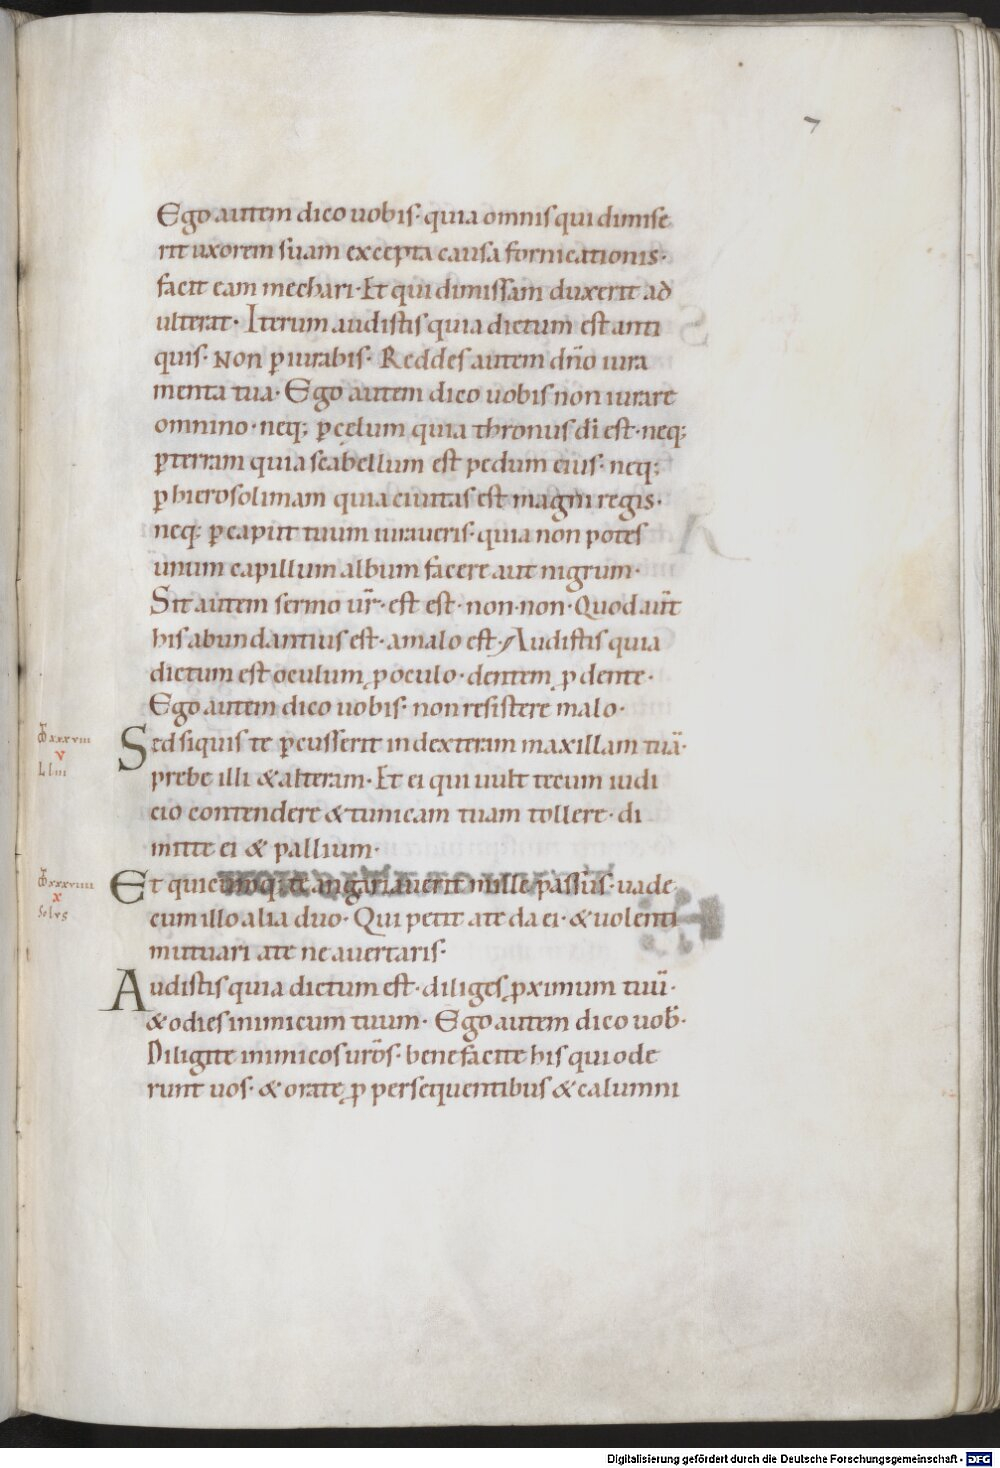 7
Ego autem dico uobis· quia omnis qui dimise
rit uxorem suam excepta causa fornicationis·
facit eam mechari· Et qui dimissam duxerit ad
ulterat· Iterum audistis quia dictum est anti
quis· Non ꝑiurabis· Reddes autem dn̄o iura
menta tua· Ego autem dico uobis non iurare
omnino· neq; ꝑ cęlum quia thronus dī est· neq;
ꝑ terram quia scabellum est pedum eius· neq;
ꝑ hierosolimam quia ciuitas est magni regis·
neq; ꝑ caput tuum iuraueris· quia non potes
unum capillum album facere aut nigrum·
Sit autem sermo ur̄· est est· non· non· Quod aūt
his abundantius est· a malo est· Audistis quia
dictum est oculum ꝓ oculo· dentem ꝓ dente·
Ego autem dico uobis· non resistere malo·
xxxviii
v
L liii
Sed siquis te ꝑcusserit in dexteram maxillam tuā·
prebe illi & alteram· Et ei qui uult tecum iudi
cio contendere & tunicam tuam tollere· di
mitte ei & pallium·
xxxviiii
x
solvs
Et quicumq; te angariauerit mille passus· uade
cum illo alia duo· Qui petit a te da ei· & uolenti
mutuari a te ne auertaris·
Audistis quia dictum est· diliges ꝓximum tuū·
& odies inimicum tuum· Ego autem dico uob̄·
Diligite inimicos urōs· benefacite his qui ode
runt uos· & orate ꝓ persequentibus & calumni
Digitalisierung gefördert durch die Deutsche Forschungsgemeinschaft - DFG